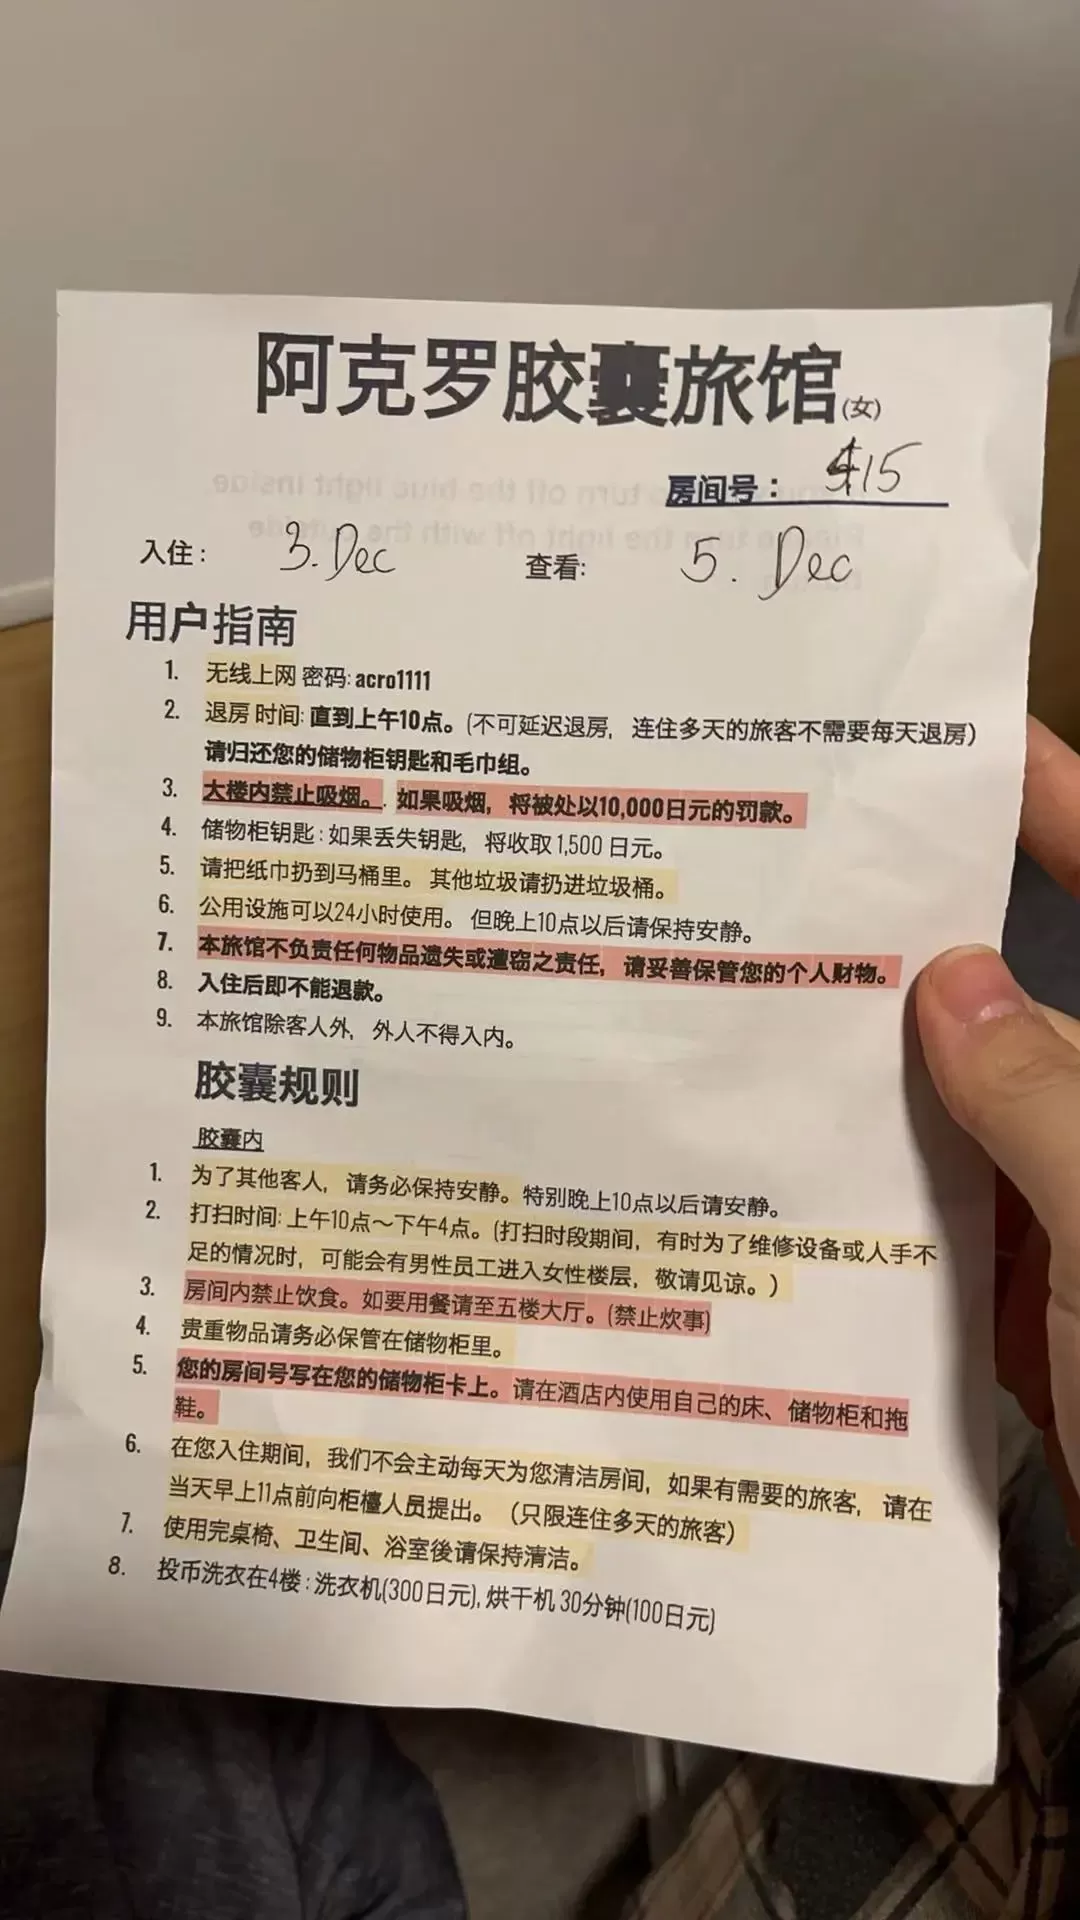 阿克罗胶囊旅馆(女)
房间号：415
入住： 3. Dec 查看: 5. Dec
用户指南
1. 无线上网 密码: acro1111
2. 退房 时间: 直到上午10点。(不可延迟退房，连住多天的旅客不需要每天退房)
请归还您的储物柜钥匙和毛巾组。
3. 大楼内禁止吸烟。. 如果吸烟，将被处以10,000日元的罚款。
4. 储物柜钥匙：如果丢失钥匙，将收取 1,500 日元。
5. 请把纸巾扔到马桶里。 其他垃圾请扔进垃圾桶。
6. 公用设施可以24小时使用。 但晚上10点以后请保持安静。
7. 本旅馆不负责任何物品遗失或遭窃之责任，请妥善保管您的个人财物。
8. 入住后即不能退款。
9. 本旅馆除客人外，外人不得入内。
胶囊规则
胶囊内
1. 为了其他客人，请务必保持安静。特别晚上10点以后请安静。
2. 打扫时间: 上午10点～下午4点。(打扫时段期间，有时为了维修设备或人手不
足的情况时，可能会有男性员工进入女性楼层，敬请见谅。)
3. 房间内禁止饮食。如要用餐请至五楼大厅。(禁止炊事)
4. 贵重物品请务必保管在储物柜里。
5. 您的房间号写在您的储物柜卡上。请在酒店内使用自己的床、储物柜和拖
鞋。
6. 在您入住期间，我们不会主动每天为您清洁房间，如果有需要的旅客，请在
当天早上11点前向柜檯人员提出。（只限连住多天的旅客）
7. 使用完桌椅、卫生间、浴室後请保持清洁。
8. 投币洗衣在4楼：洗衣机(300日元), 烘干机 30分钟(100日元)